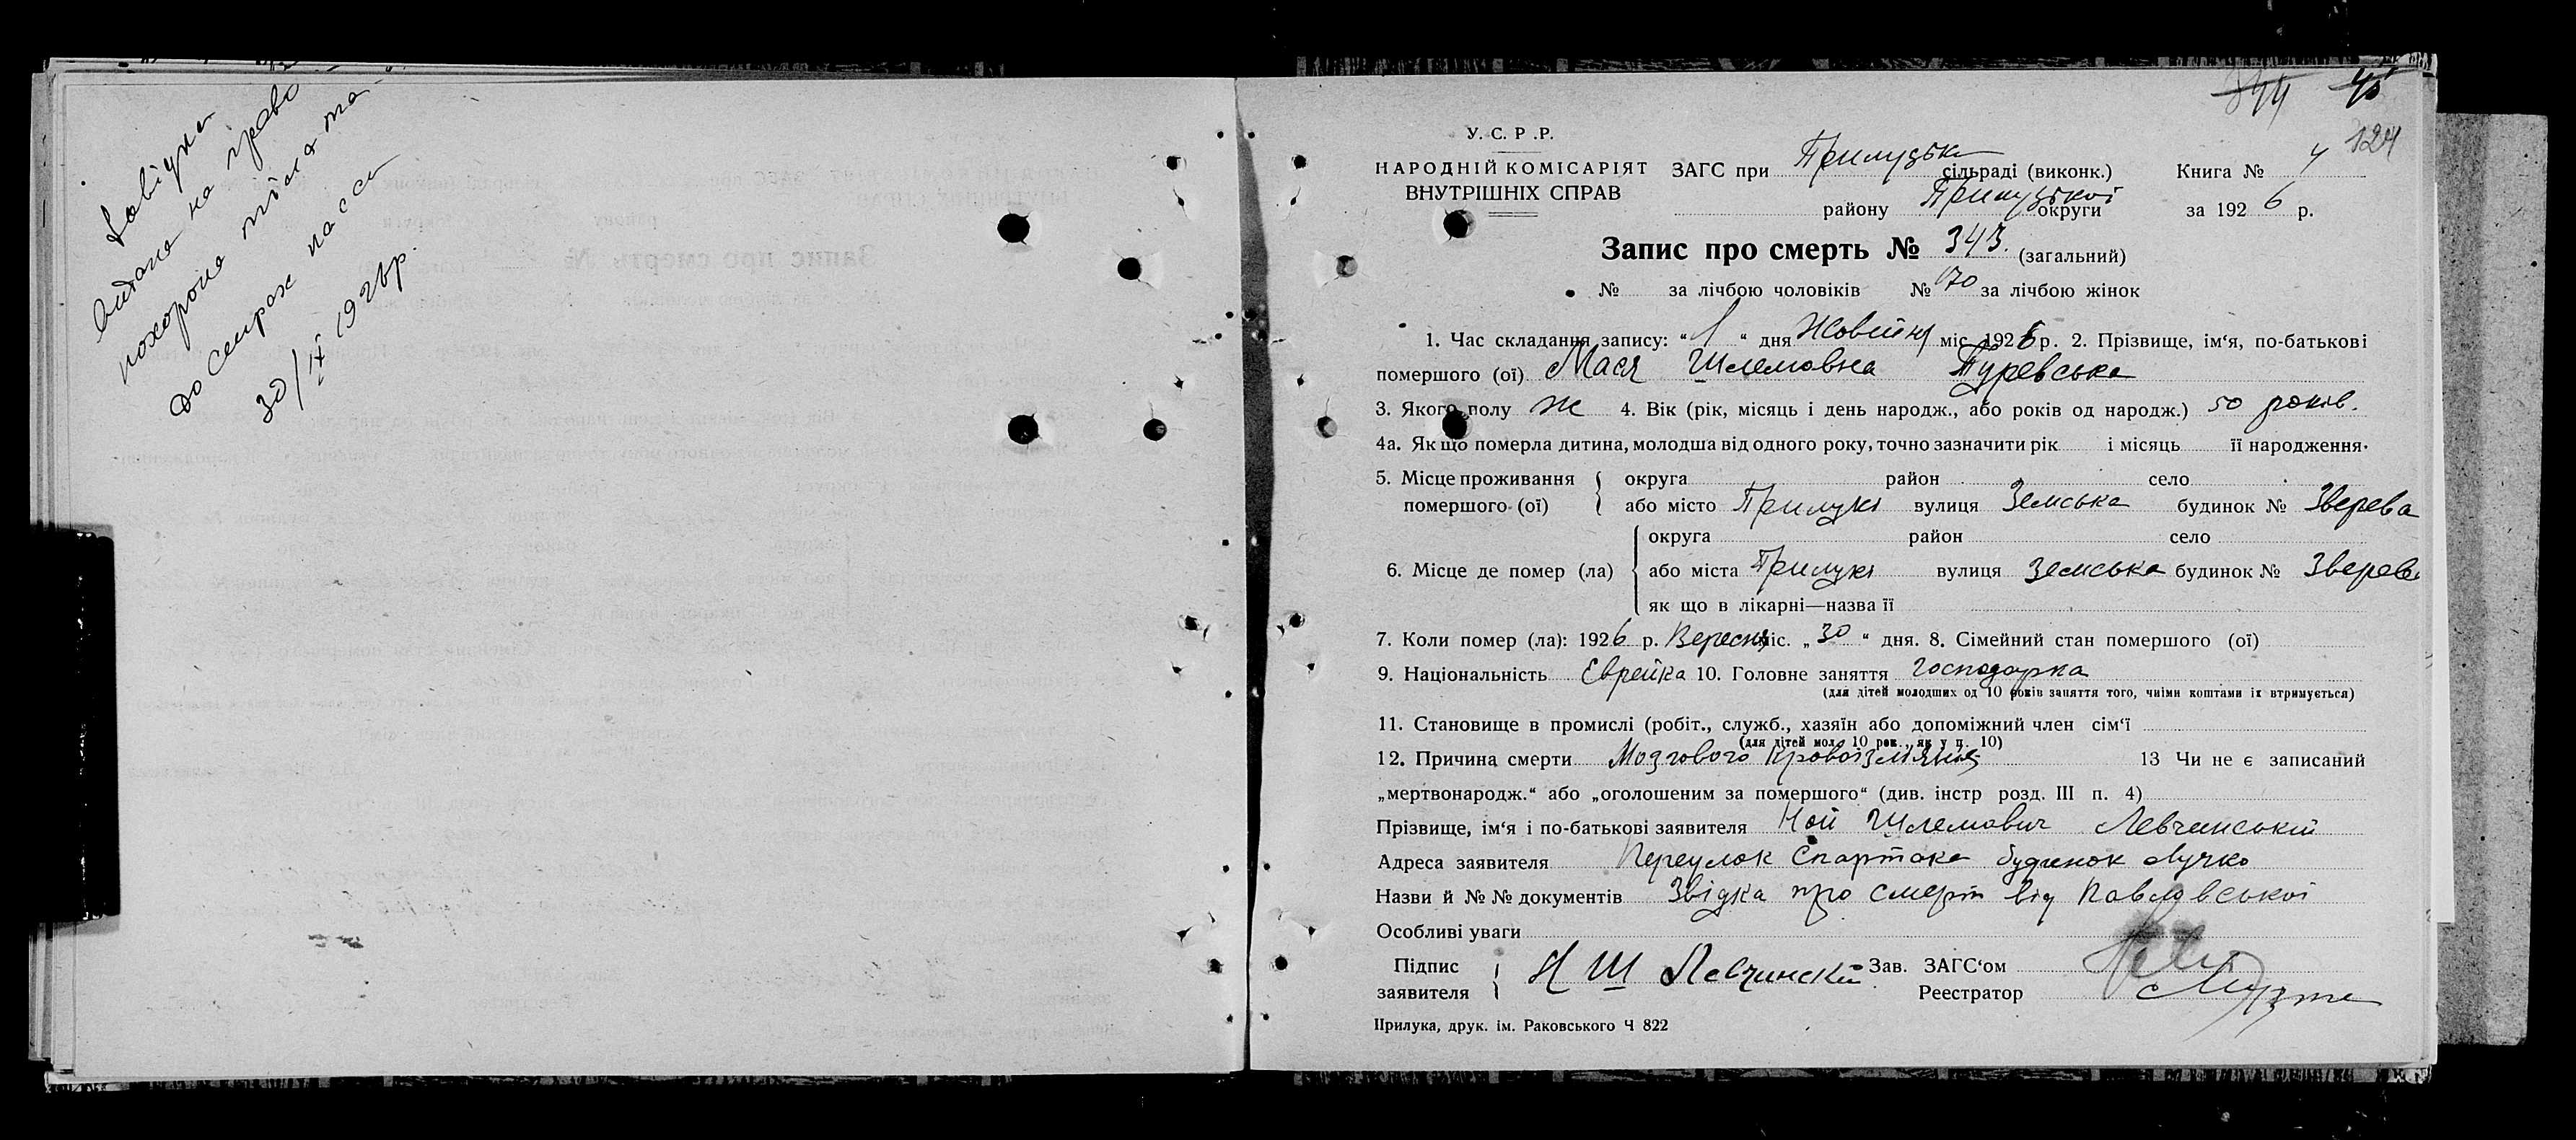 Довідка
видана на право
похорона тіла та
до страх касси
30/IX 1926р.
344 45
124
У. С. Р. Р.
НАРОДНІЙ КОМІСАРІЯТ
ВНУТРІШНІХ СПРАВ
ЗАГС при Прилуцьк сільраді (виконк.) Книга № 4
району Прилуцької округи за 1926 р.
Запис про смерть № 343. (загальний)
№ за лічбою чоловіків № 170 за лічбою жінок
1. Час складання запису: “ 1 “ дня Жовтня міс. 1926 р. 2. Прізвище, ім‘я, по-батькові
помершого (ої) Мася Шлемовна Туревська
3. Якого полу ж 4. Вік (рік, місяць і день народж., або років од народж.) 50 років.
4а. Як що померла дитина, молодша від одного року, точно зазначити рік і місяць її народження.
5. Місце проживання помершого (ої) округа район село
або місто Прилуки вулиця Земська будинок № Зверева
6. Місце де помер (ла) округа район село
або міста Прилуки вулиця Земська будинок № Зверева
як що в лікарні—назва її
7. Коли помер (ла): 1926 р. Вересня міс. „ 30 “ дня. 8. Сімейний стан помершого (ої)
9. Національність Еврейка 10. Головне заняття господарка
(для дітей молодших од 10 років заняття того, чиїми коштами їх втримується)
11. Становище в промислі (робіт., служб., хазяїн або допоміжний член сім‘ї
(для дітей мол. 10 рок., як у п. 10)
12. Причина смерти Мозгового кровоізліяния 13 Чи не є записаний
„мертвонародж.“ або „оголошеним за помершого“ (див. інстр розд. III п. 4)
Прізвище, ім‘я і по-батькові заявителя Ной Шлемович Левчинський
Адреса заявителя Переулок Спартака будинок Лучко
Назви й №№ документів Звідка про смерт від Павловської
Особливі уваги
Підпис заявителя Н Ш Левчинский Зав. ЗАГС‘ом
Реестратор
Прилука, друк. ім. Раковського Ч 822